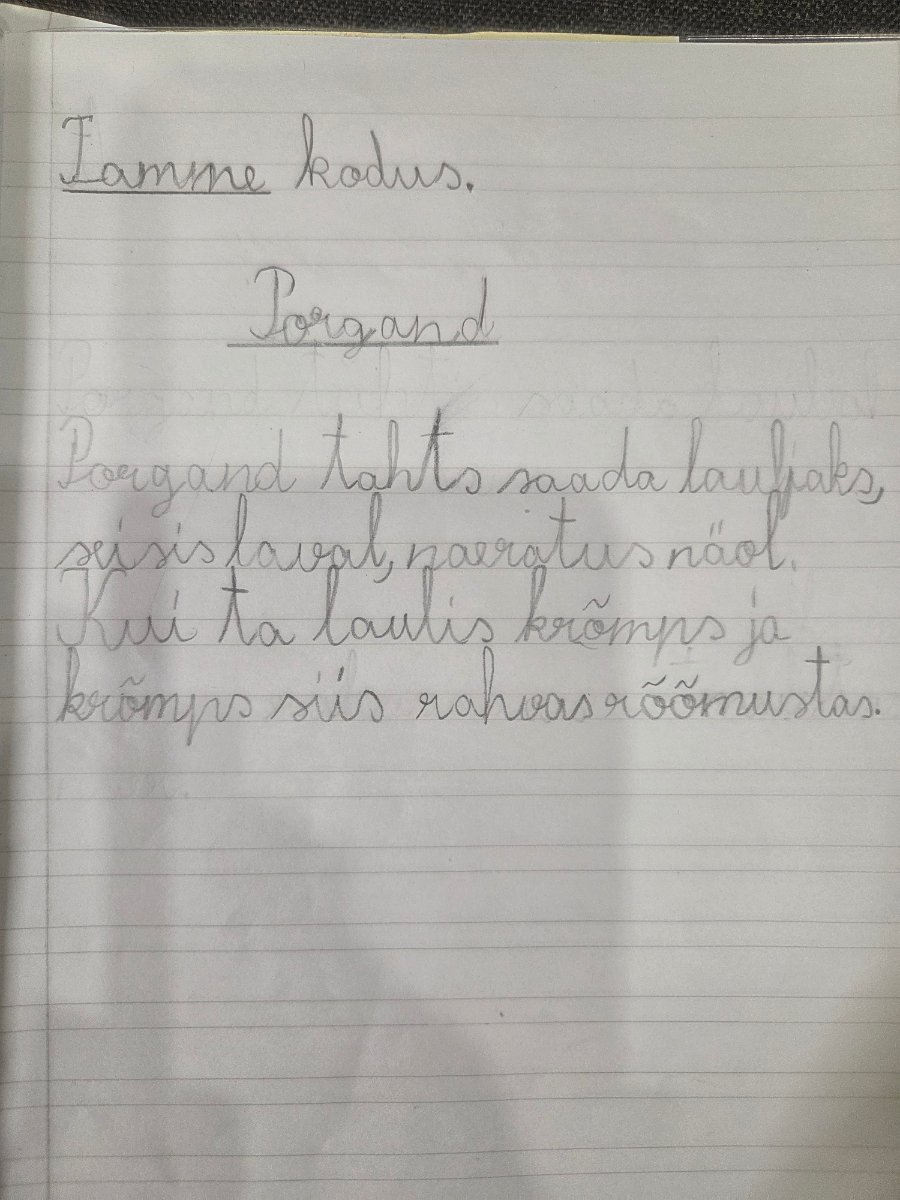 Tamme kodus.
Porgand
Porgand tahts saada lauljaks,
seisis laval, naeratus näol.
Kui ta laulis krõmps ja
krõmps siis rahvas rõõmustas.